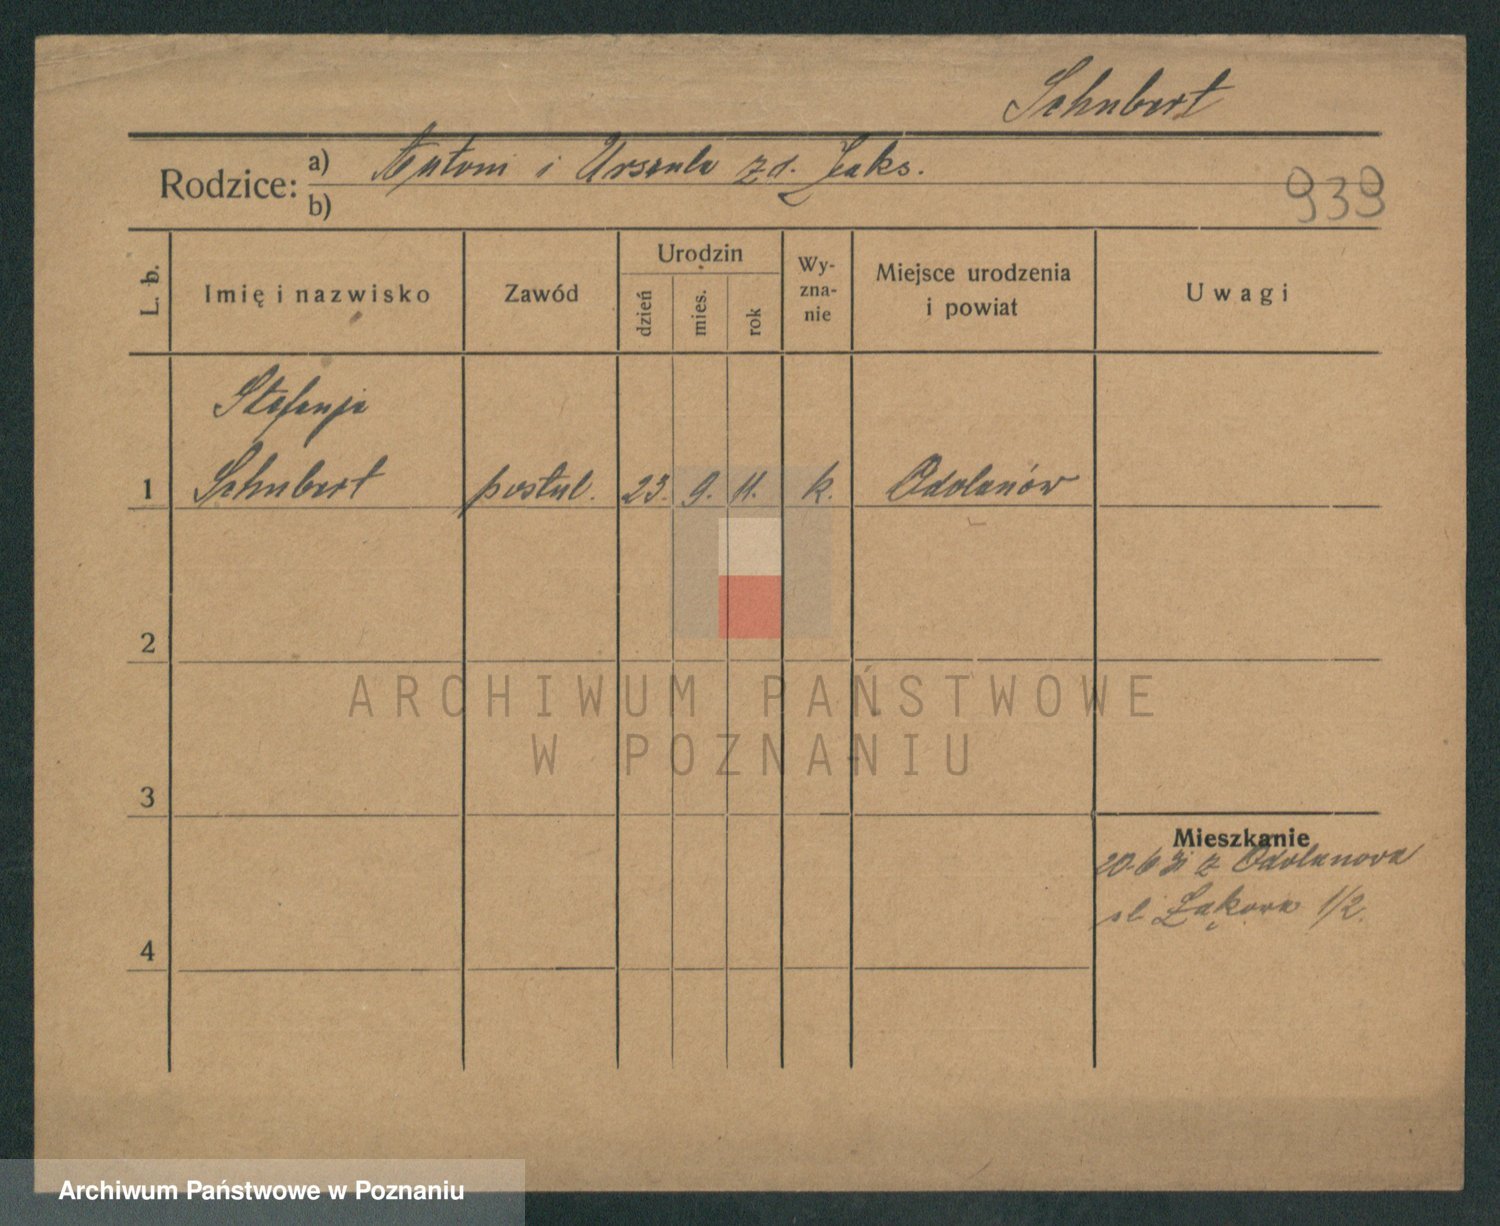 Schubert
Rodzice: a) Antoni i Urszula zd. Zaks.
b)
939
L. b.
Imię i nazwisko
Zawód
Urodzin
dzień
mies.
rok
Wy-
zna-
nie
Miejsce urodzenia
i powiat
Uwagi
Stefanja
1 Schubert postul. 23. 9. 11. k. Odolanów
2
ARCHIWUM PAŃSTWOWE
W POZNANIU
3
Mieszkanie
20.6 31 z Odolanowa
4
ul. Łąkowa 1/2.
Archiwum Państwowe w Poznaniu